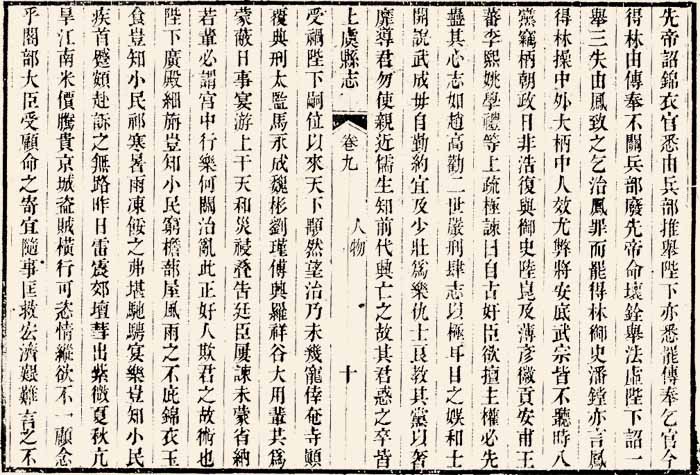 先帝詔錦衣官悉由兵部推舉陛下亦悉罷傳奉乞官今
得林由傳奉不關兵部廢先帝命壞銓舉法虛陛下詔一
舉三失由鳳致之乞治鳳罪而罷得林御史潘鏜亦言鳳
得林操中外大柄中人效尤弊將安底武宗皆不聽時八
黨竊柄朝政日非浩復與御史陸崑及薄彥徽貢安甫王
蕃李熙姚學禮等上疏極諫曰自古奸臣欲擅主權必先
蠱其心志如趙高勸二世嚴刑肆志以極耳目之娛和士
開說武成毋自勤約宜及少壯為樂仇士良教其黨以奢
靡導君勿使親近儒生知前代興亡之故其君惑之卒皆
上虞縣志
卷九
人物
十
受禍陛下嗣位以來天下顒然望治乃未幾寵倖奄寺顛
覆典刑太監馬永成魏彬劉瑾傅興羅祥谷大用輩共為
蒙蔽日事宴游上干天和災祲疊告廷臣屢諫未蒙省納
若輩必謂宮中行樂何關治亂此正奸人欺君之故術也
陛下廣殿細旃豈知小民窮檐蔀屋風雨之不庇錦衣玉
食豈知小民祁寒暑雨凍餒之弗堪馳騁宴樂豈知小民
疾首蹙頞赴訴之無路昨日雷震郊壇彗出紫微夏秋亢
旱江南米價騰貴京城盜賊橫行可恣情縱欲不一顧念
乎閣部大臣受顧命之寄宜隨事匡救宏濟艱難言之不